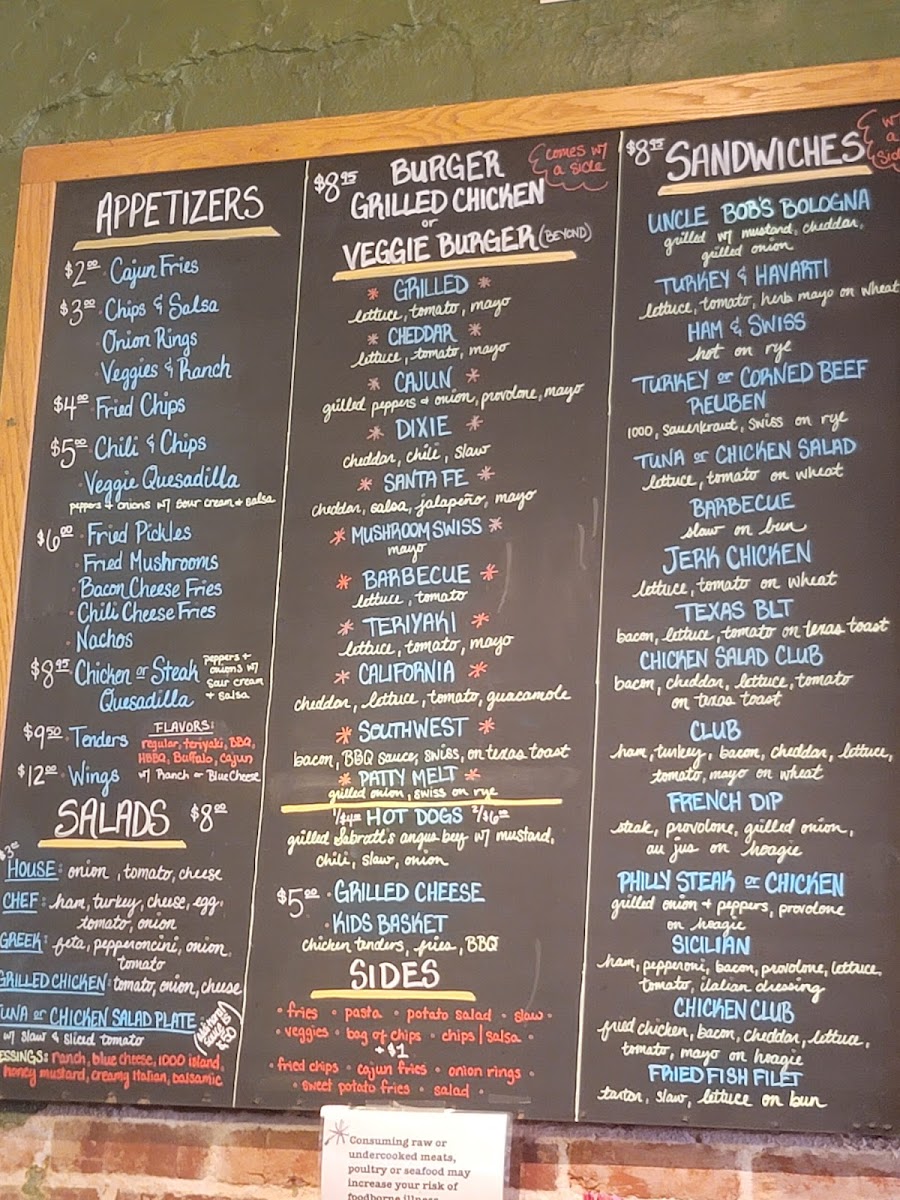 APPETIZERS
$2.00 · Cajun Fries
$3.00 · Chips & Salsa
· Onion Rings
· Veggies & Ranch
$4.00 · Fried Chips
$5.00 · Chili & Chips
· Veggie Quesadilla
peppers + onions w/ sour cream + salsa
$6.00 · Fried Pickles
· Fried Mushrooms
· Bacon Cheese Fries
· Chili Cheese Fries
· Nachos
$8.95 · Chicken or Steak
Quesadilla
peppers +
onions w/
sour cream
+ salsa
$9.50 · Tenders
$12.00 · Wings
FLAVORS:
regular, teriyaki, BBQ,
HBBQ, Buffalo, cajun
w/ Ranch or Blue Cheese
SALADS $8.00
$3.00
HOUSE: onion, tomato, cheese
CHEF: ham, turkey, cheese, egg,
tomato, onion
GREEK: feta, pepperoncini, onion,
tomato
GRILLED CHICKEN: tomato, onion, cheese
TUNA or CHICKEN SALAD PLATE
w/ slaw & sliced tomato
ESSINGS: ranch, blue cheese, 1000 island,
honey mustard, creamy italian, balsamic
$8.95 BURGER
GRILLED CHICKEN
or
VEGGIE BURGER (BEYOND)
comes w/
a side
* GRILLED *
lettuce, tomato, mayo
* CHEDDAR *
lettuce, tomato, mayo
* CAJUN *
grilled peppers + onion, provolone, mayo
* DIXIE *
cheddar, chili, slaw
* SANTA FE *
cheddar, salsa, jalapeño, mayo
* MUSHROOM SWISS *
mayo
* BARBECUE *
lettuce, tomato
* TERIYAKI *
lettuce, tomato, mayo
* CALIFORNIA *
cheddar, lettuce, tomato, guacamole
* SOUTHWEST *
bacon, BBQ sauce, swiss, on texas toast
* PATTY MELT *
grilled onion, swiss on rye
1/$4.00 HOT DOGS 2/$6.00
grilled Sabratt's angus beef w/ mustard,
chili, slaw, onion
$5.00 · GRILLED CHEESE
· KIDS BASKET
chicken tenders, fries, BBQ
SIDES
· fries · pasta · potato salad · slaw ·
· veggies · bag of chips · chips/salsa ·
+ $1
· fried chips · cajun fries · onion rings ·
· sweet potato fries · salad ·
$8.95 SANDWICHES
w/
a
side
UNCLE BOB'S BOLOGNA
grilled w/ mustard, cheddar,
grilled onion
TURKEY & HAVARTI
lettuce, tomato, herb mayo on wheat
HAM & SWISS
hot on rye
TURKEY or CORNED BEEF
REUBEN
1000, sauerkraut, swiss on rye
TUNA or CHICKEN SALAD
lettuce, tomato on wheat
BARBECUE
slaw on bun
JERK CHICKEN
lettuce, tomato on wheat
TEXAS BLT
bacon, lettuce, tomato on texas toast
CHICKEN SALAD CLUB
bacon, cheddar, lettuce, tomato
on texas toast
CLUB
ham, turkey, bacon, cheddar, lettuce,
tomato, mayo on wheat
FRENCH DIP
steak, provolone, grilled onion,
au jus on hoagie
PHILLY STEAK or CHICKEN
grilled onion + peppers, provolone
on hoagie
SICILIAN
ham, pepperoni, bacon, provolone, lettuce,
tomato, italian dressing
CHICKEN CLUB
fried chicken, bacon, cheddar, lettuce,
tomato, mayo on hoagie
FRIED FISH FILET
tartar, slaw, lettuce on bun
* Consuming raw or
undercooked meats,
poultry or seafood may
increase your risk of
foodborne illness